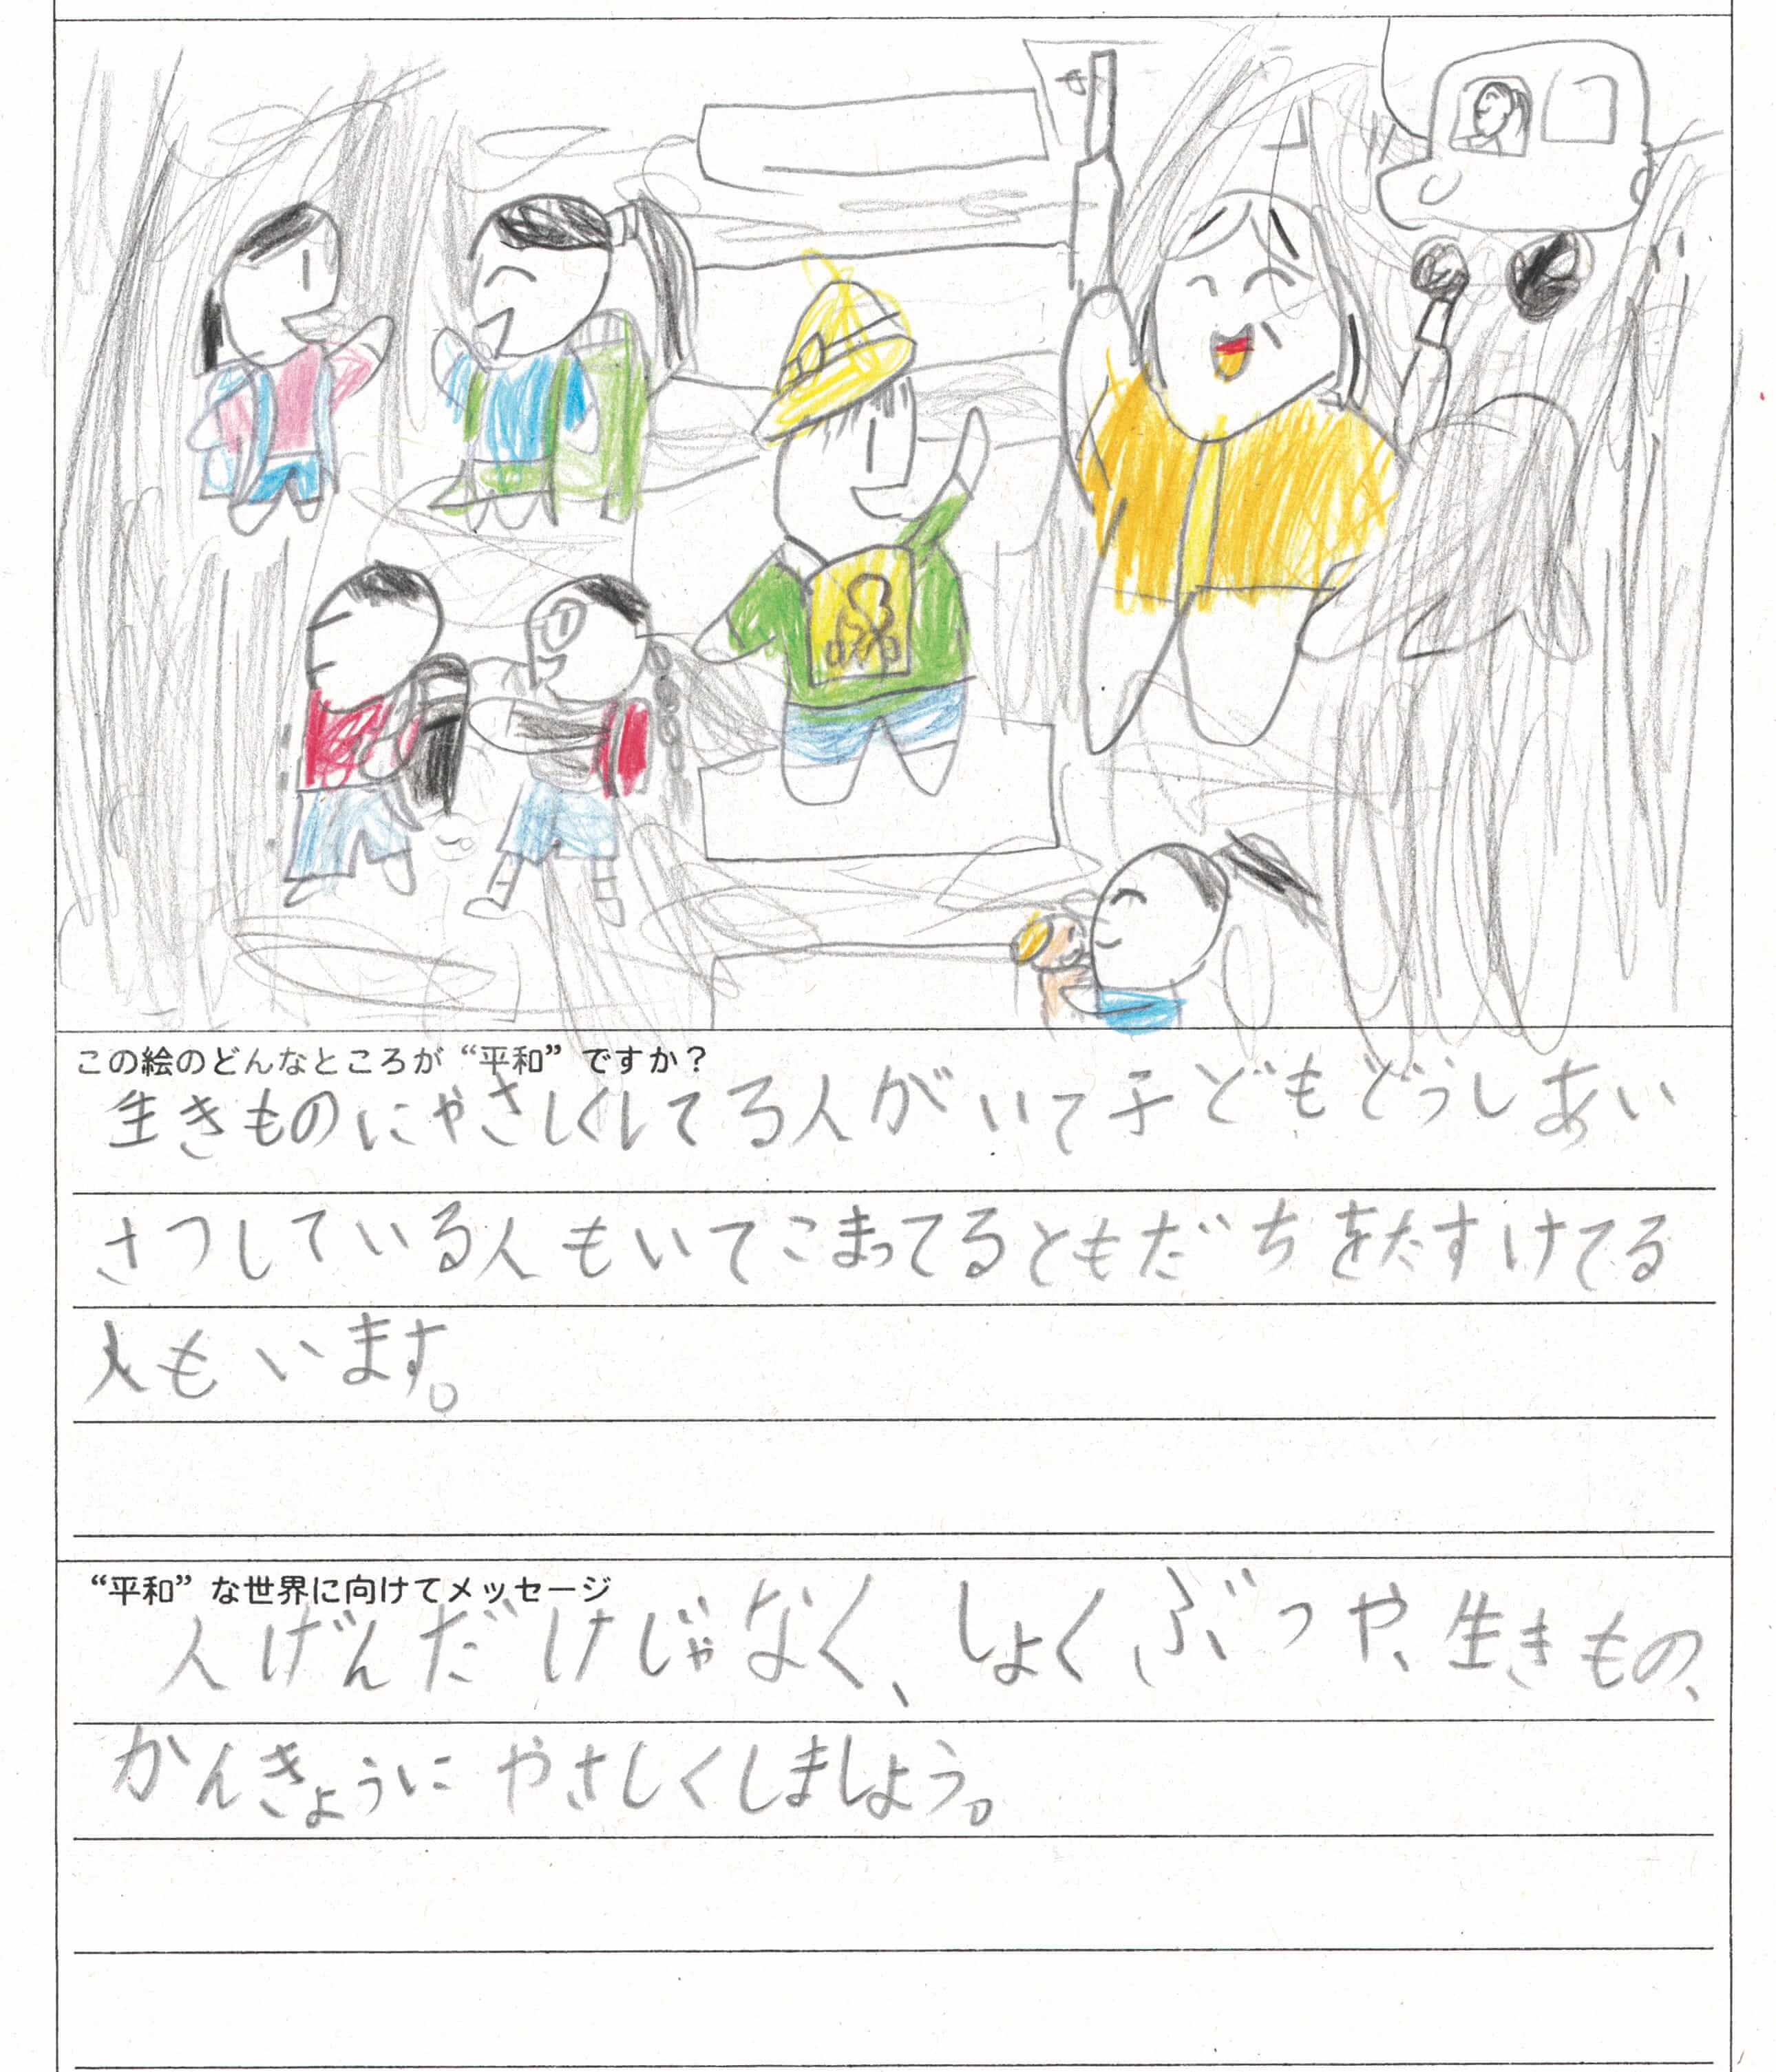 この絵のどんなところが“平和”ですか？
生きものにやさしくしてる人がいて子どもどうしあい
さつしている人もいてこまってるともだちをたすけてる
人もいます。
“平和”な世界に向けてメッセージ
人げんだけじゃなく、しょくぶつや、生きもの、
かんきょうにやさしくしましょう。